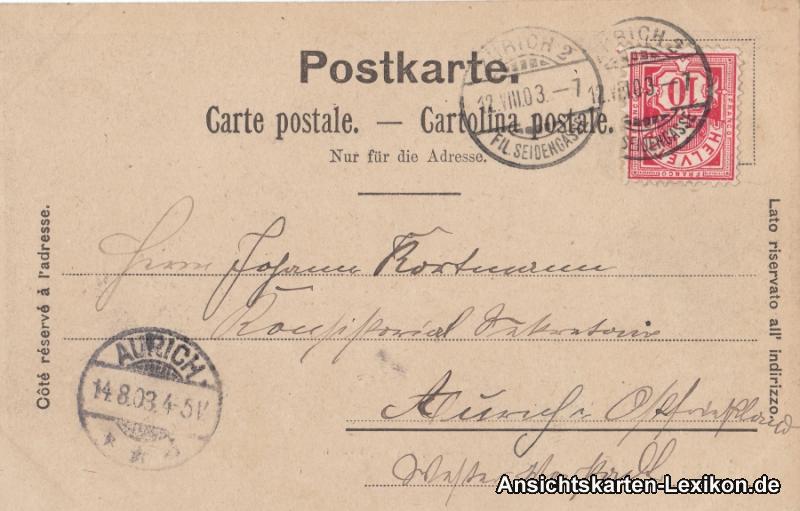 Postkarte.
Carte postale. — Cartolina postale.
Nur für die Adresse.
Côté réservé à l'adresse.
Lato riservato all' indirizzo.
ZÜRICH 2
12.VIII.03.—7
FIL. SEIDENGASSE
ZÜRICH 2
12.VIII.03.—7
SEIDENGASSE
10
HELVE
FRANCO
Herrn Johann Kortmann
Konsistorial Sekretair
Aurich i Ostfriesland
AURICH
14.8.03.4-5N
Ansichtskarten-Lexikon.de